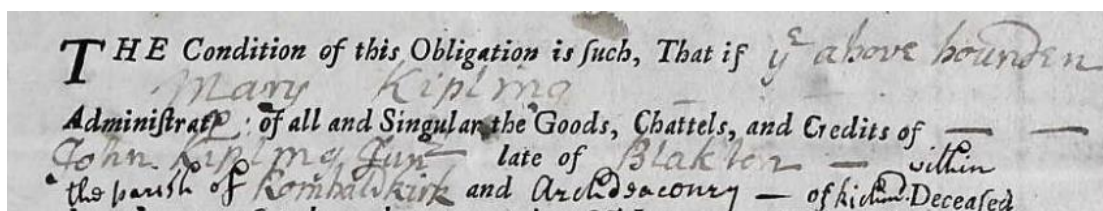 THE Condition of this Obligation is ſuch, That if yᵉ above bounden
Mary Kipling
Adminiſtrat of all and Singular the Goods, Chattels, and Credits of — —
John Kipling Junʳ late of Blakton — within
the parish of Rombaldkirk and Archdeaconry — of Richm. Deceaſed